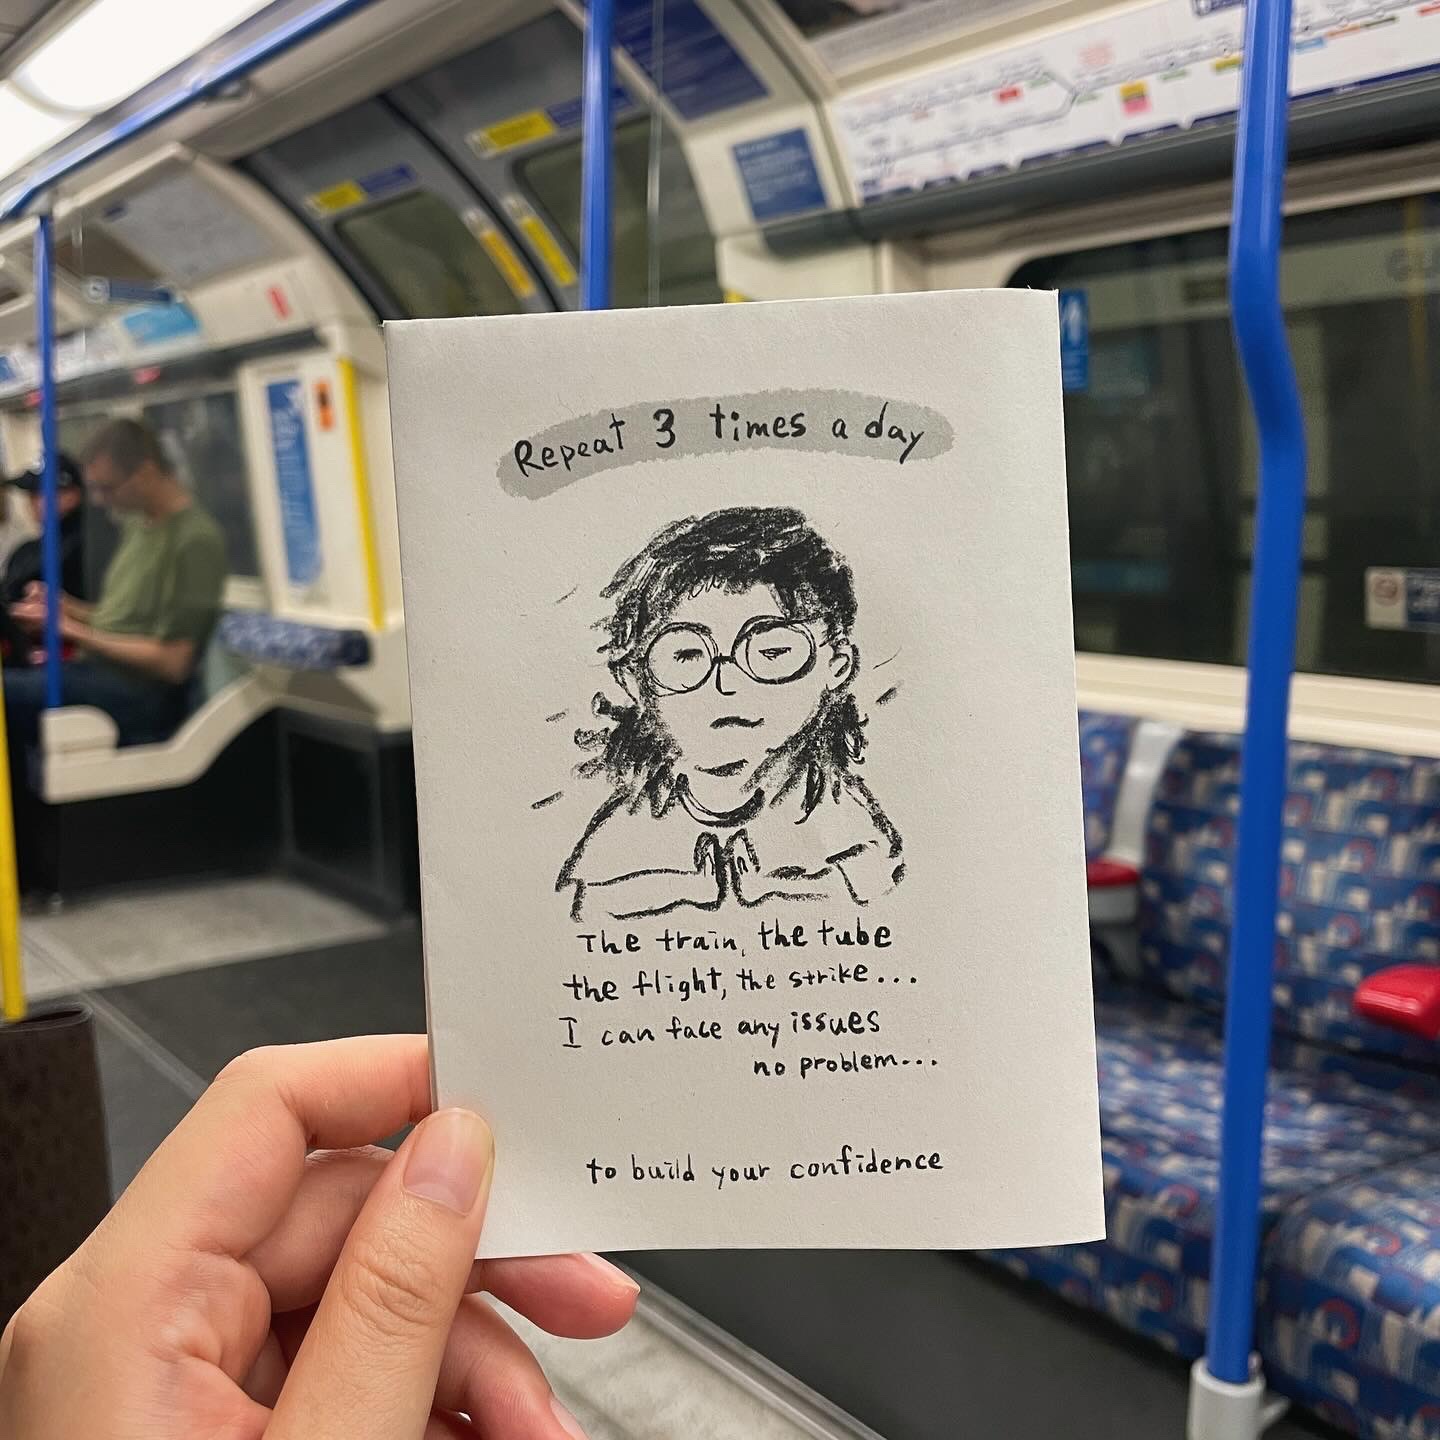 Repeat 3 times a day
The train, the tube
the flight, the strike...
I can face any issues
no problem...
to build your confidence